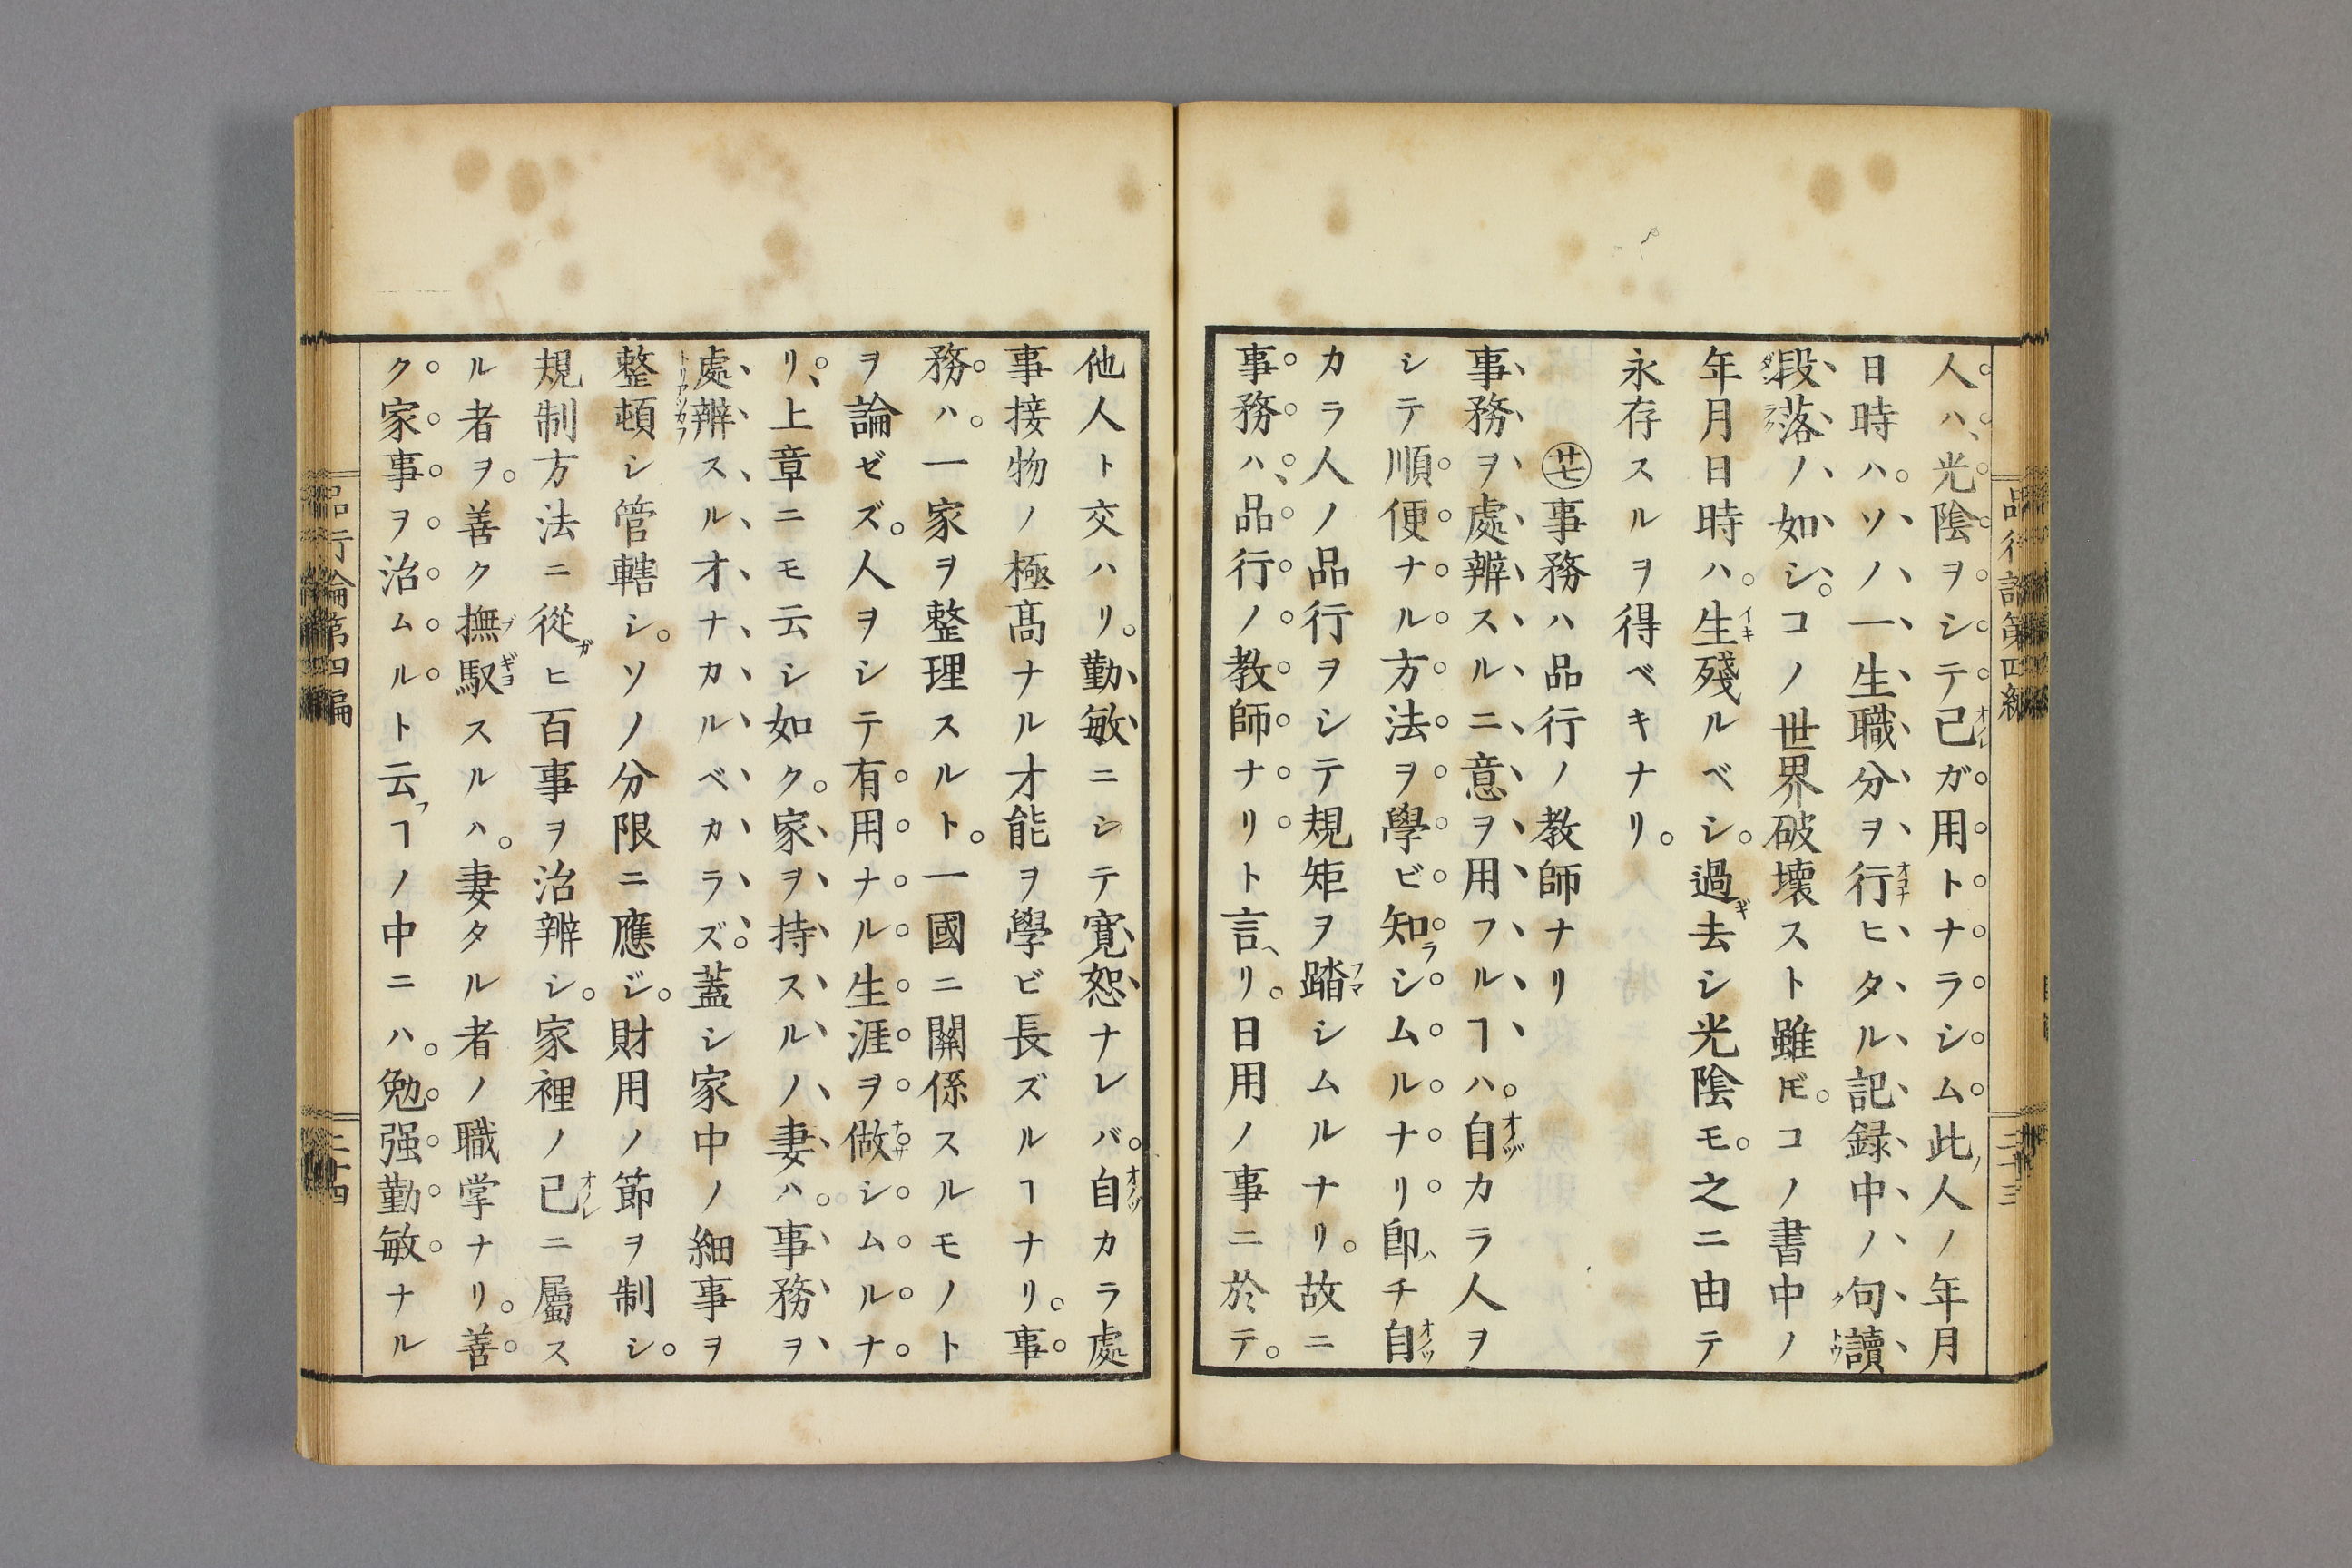 人ハ、光陰ヲシテ己ガ用トナラシム。此人ノ年月
日時ハ。ソノ一生職分ヲ行ヒタル記録中ノ句讀
段落ノ如シ。コノ世界破壊スト雖𪜈。コノ書中ノ
年月日時ハ。生殘ルベシ。過去シ光陰モ。之ニ由テ
永存スルヲ得ベキナリ。
㊆事務ハ品行ノ教師ナリ
事務ヲ處辨スルニ意ヲ用フルヿハ。自カラ人ヲ
シテ順便ナル方法ヲ學ビ知シムルナリ。即チ自
カラ人ノ品行ヲシテ規矩ヲ踏シムルナリ。故ニ
事務ハ、品行ノ教師ナリト言リ。日用ノ事ニ於テ。
品行論第四編
二十三
他人ト交ハリ。勤敏ニシテ寛恕ナレバ。自カラ處
事接物ノ極髙ナル才能ヲ學ビ長ズルヿナリ。事
務ハ。一家ヲ整理スルト。一國ニ關係スルモノト
ヲ論ゼズ。人ヲシテ有用ナル生涯ヲ做シムルナ
リ、上章ニモ云シ如ク。家ヲ持スルノ妻ハ。事務ヲ
處辨スル才ナカルベカラズ。蓋シ家中ノ細事ヲ
整頓シ管轄シ。ソノ分限ニ應ジ。財用ノ節ヲ制シ。
規制方法ニ從ヒ百事ヲ治辨シ。家裡ノ己ニ屬ス
ル者ヲ。善ク撫馭スルハ。妻タル者ノ職掌ナリ。善
ク家事ヲ治ムルト云ヿノ中ニハ。勉强勤敏ナル
品行論第四編
二十四